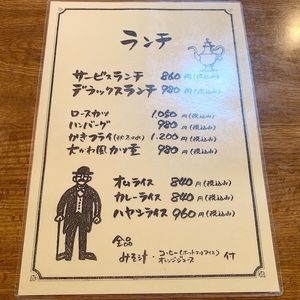 ランチ
サービスランチ 860円(税込み)
デラックスランチ 980円(税込み)
ロースカツ 1,050円(税込み)
ハンバーグ 980円(税込み)
かきフライ 1,200円(税込み)
大かわ風カツ重 980円(税込み)
オムライス 840円(税込み)
カレーライス 840円(税込み)
ハヤシライス 960円(税込み)
全品
みそ汁・コーヒー(ホットorアイス) 付
オレンジジュース